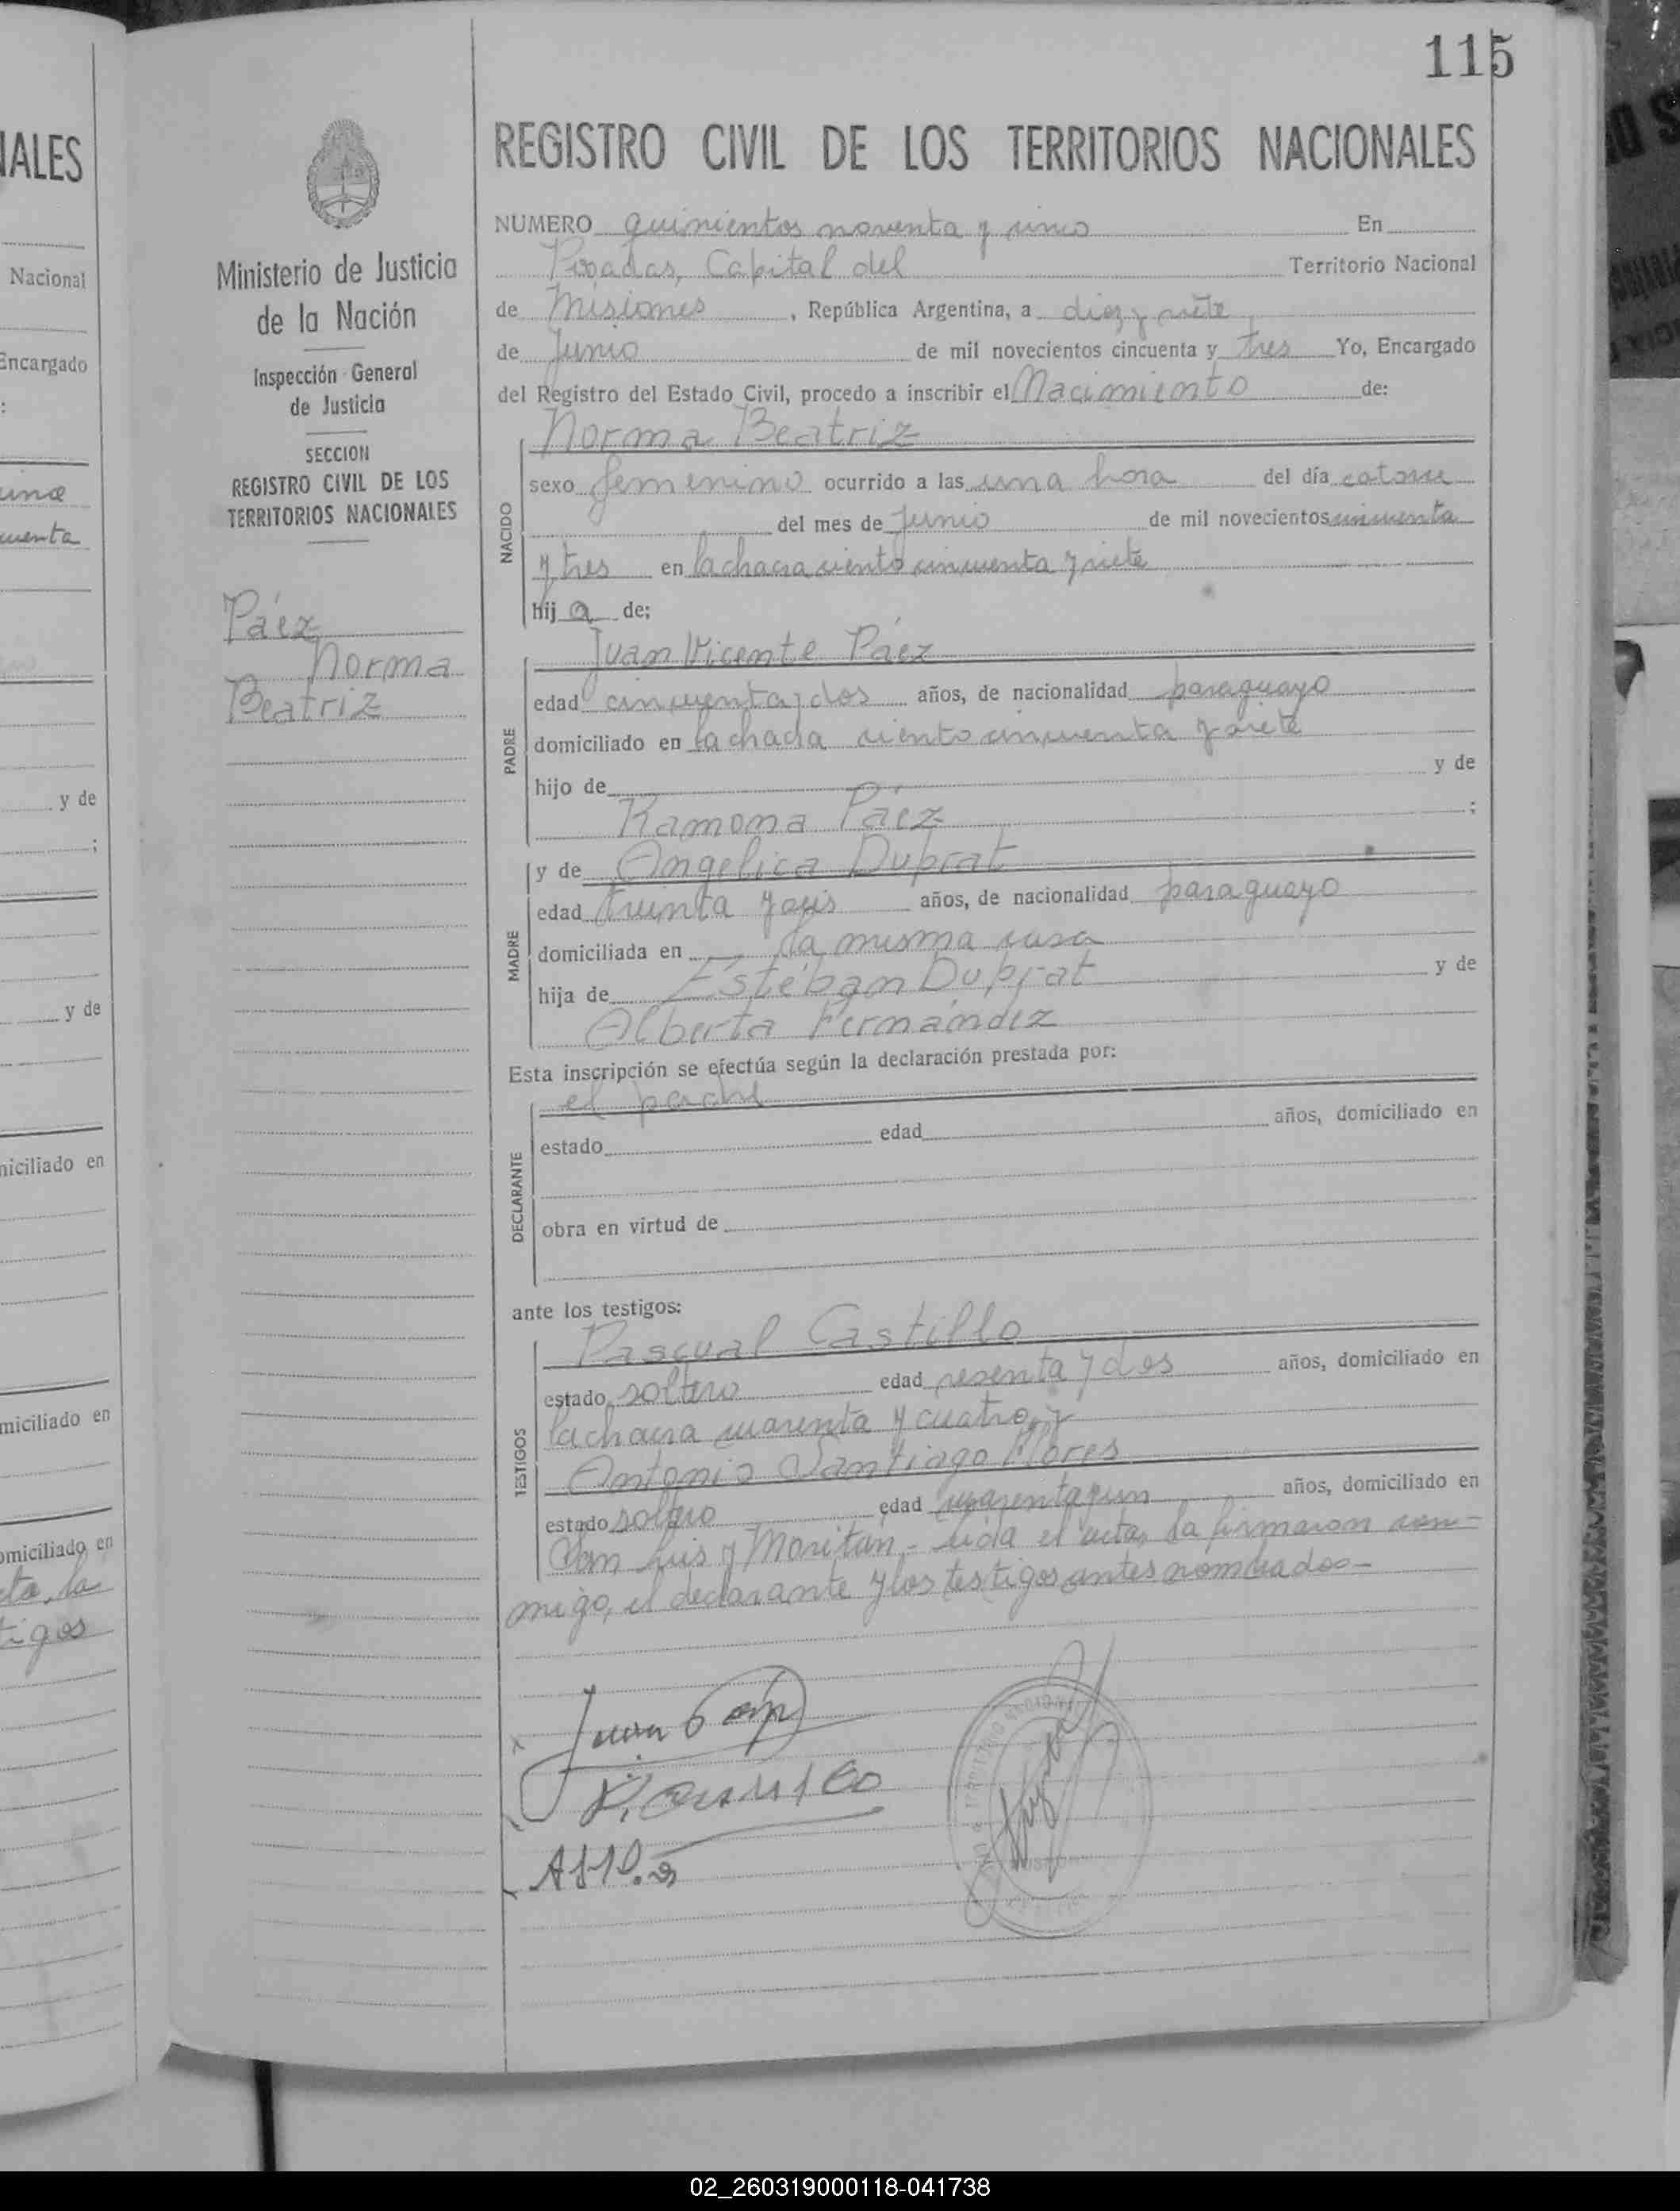 115
REGISTRO CIVIL DE LOS TERRITORIOS NACIONALES
NUMERO quinientos noventa y cinco En
Posadas, Capital del Territorio Nacional
de Misiones, República Argentina, a diez y siete
de Junio de mil novecientos cincuenta y tres Yo, Encargado
del Registro del Estado Civil, procedo a inscribir el Nacimiento de:
Norma Beatriz
sexo femenino ocurrido a las una hora del día catorce
del mes de Junio de mil novecientos cincuenta
y tres en la chacra ciento cincuenta y siete
hij a de;
NACIDO
Juan Vicente Páez
edad cincuenta y dos años, de nacionalidad paraguayo
domiciliado en la chacra ciento cincuenta y siete
hijo de y de
Ramona Páez ;
PADRE
y de Angelica Duprat
edad treinta y seis años, de nacionalidad paraguayo
domiciliada en la misma casa
hija de Estéban Duprat y de
Alberta Fernández
MADRE
Esta inscripción se efectúa según la declaración prestada por:
el padre
estado edad años, domiciliado en
obra en virtud de
DECLARANTE
ante los testigos:
Pascual Castillo
estado soltero edad sesenta y dos años, domiciliado en
la chacra cuarenta y cuatro, y
Antonio Santiago Flores
estado soltero edad cuarenta y un años, domiciliado en
San Luis y Moritán,- leída el acta, la firmaron con-
migo, el declarante y los testigos antes nombrados-
TESTIGOS
Juan
Ministerio de Justicia
de la Nación
Inspección General
de Justicia
SECCION
REGISTRO CIVIL DE LOS
TERRITORIOS NACIONALES
Páez
Norma
Beatriz
NALES
Nacional
Encargado
:
y de
;
y de
miciliado en
miciliado en
omiciliado en
la
tigos
02_260319000118-041738